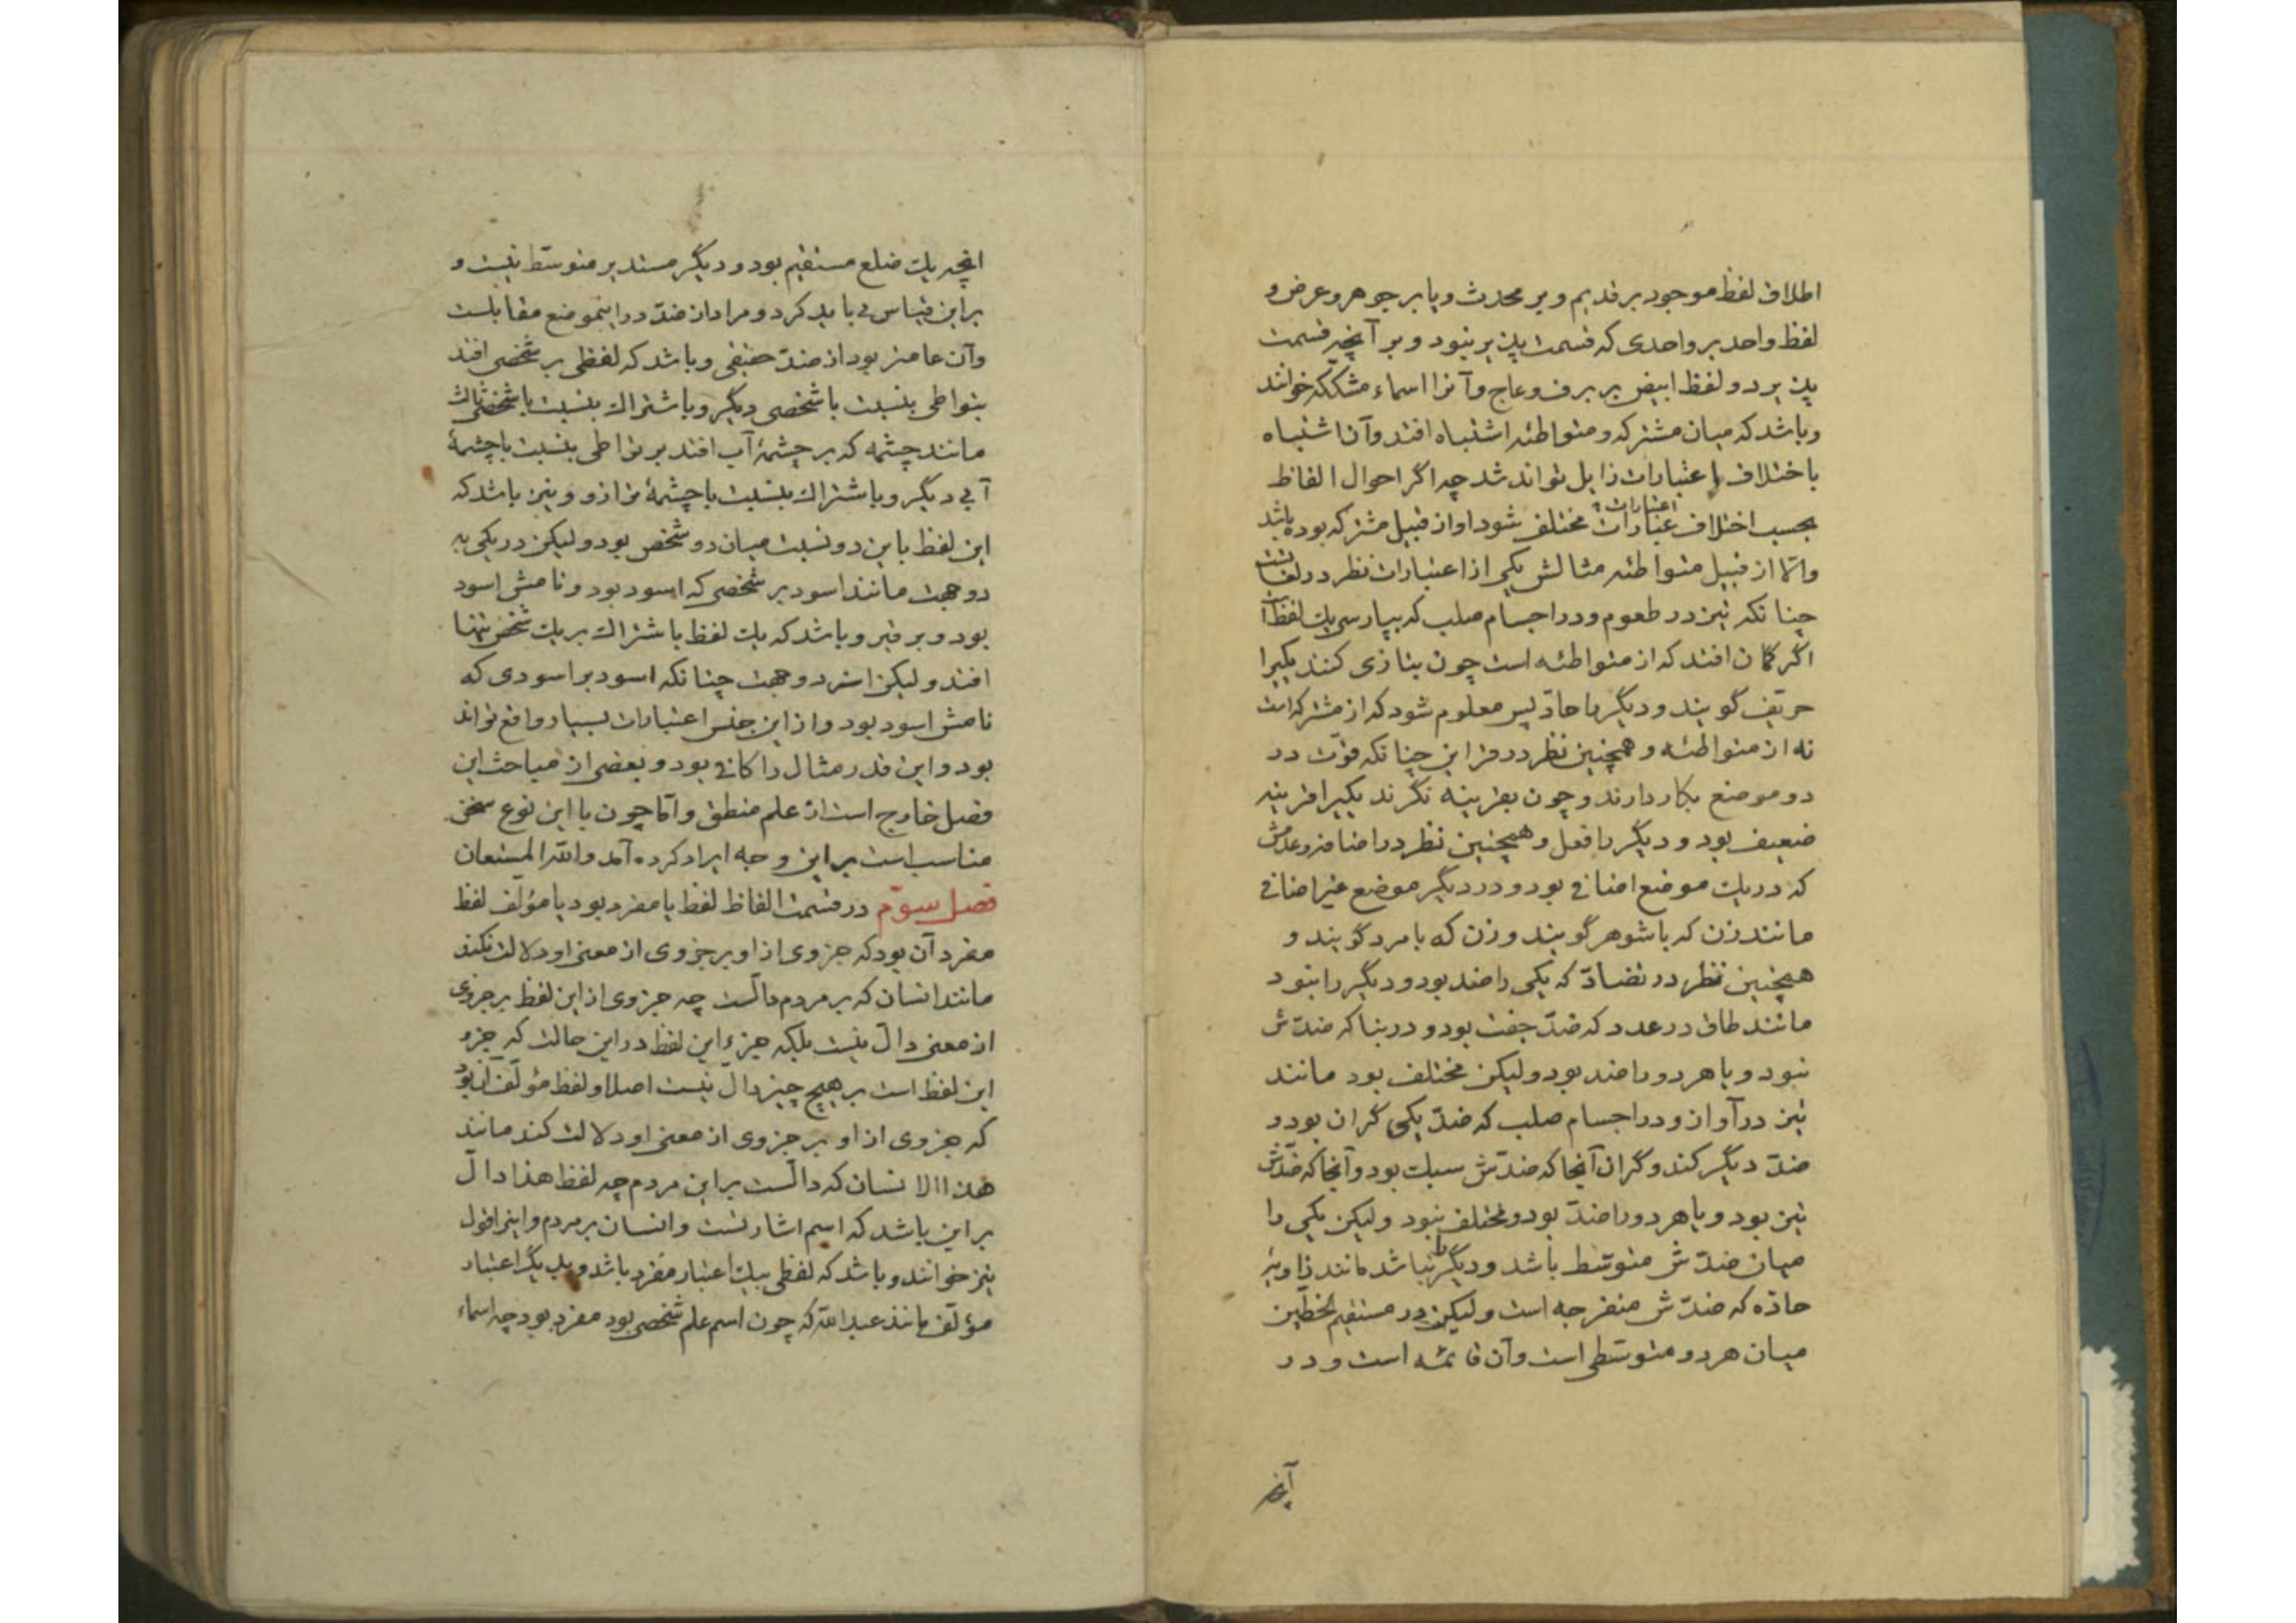 اطلاق لفظ موجود بر قدیم و بر محدث و یا بر جوهر و عرض و
لفظ واحد بر واحدی که قسمت پذیر نبود و بر آنچه قسمت
پذیرد و لفظ ابیض بر برف و عاج و آنرا اسماء مشککه خوانند
و باشد که میان مشترکه و متواطئه اشتباه افتد و آن اشتباه
باختلاف اعتبارات زایل تواند شد چه اگر احوال الفاظ
بحسب اختلاف عبارات اعتبارات مختلف شود او از قبیل مشترکه بوده باشد
والا از قبیل متواطئه مثالش یکی از اعتبارات نظر در لغات
چنانکه تیز در طعوم و در اجسام صلب که بپارسی یک لفظ
اگر گمان افتد که از متواطئه است چون بتازی کنند یکیرا
حریف گویند و دیگر را حاد پس معلوم شود که از مشترکه است
نه از متواطئه و همچنین نظر در قراین چنانکه قوت در
دو موضع بکار دارند و چون بقرینه نگرند یکیرا قرینه
ضعیف بود و دیگر را فعل و همچنین نظر در اضافه و عدمش
که در یک موضع اضافی بود و در دیگر موضع غیر اضافی
مانند زن که با شوهر گویند و زن که با مرد گویند و
همچنین نظر در تضاد که یکی را ضد بود و دیگر را نبود
مانند طاق در عدد که ضد جفت بود و در بنا که ضدش
نبود و یا هر دو را ضد بود و لیکن مختلف بود مانند
تیز در آواز و در اجسام صلب که ضد یکی گران بود و
ضد دیگر کند و گران آنجا که ضدش سبک بود و آنجا که ضدش
تیز بود و یا هر دو را ضد بود و مختلف نبود و لیکن یکی را
میان ضدش متوسط باشد و دیگر را نباشد مانند زاویه
حاده که ضدش منفرجه است و لیکن در مستقیم الخطین
میان هر دو متوسطی است و آن قائمه است و در
آنچه
انچه یک ضلع مستقیم بود و دیگر مستدیر متوسط نیست و
بر این قیاس می باید کرد و مراد از ضد در اینموضع مقابلست
و آن عامتر بود از ضد حقیقی و باشد که لفظی بر شخصی افتد
بتواطی بنسبت با شخصی دیگر و باشتراک بنسبت با شخصی ثالث
مانند چشمه که بر چشمهٔ آب افتد بر تواطی بنسبت با چشمهٔ
آبی دیگر و باشتراک بنسبت با چشمهٔ ترازو و نیز باشد که
این لفظ باین دو نسبت میان دو شخص بود و لیکن در یکی به
دو جهت مانند اسود بر شخصی که اسود بود و نامش اسود
بود و بر قیر و باشد که یک لفظ باشتراک بر یک شخص تنها
افتد و لیکن از دو جهت چنانکه اسود بر اسودی که
نامش اسود بود و از این جنس اعتبارات بسیار واقع تواند
بود و این قدر مثال را کافی بود و بعضی از مباحث این
فصل خارج است از علم منطق و اما چون با این نوع سخن
مناسب است بر این وجه ایراد کرده آمد والله المستعان
فصل سوم در قسمت الفاظ لفظ یا مفرد بود یا مؤلف لفظ
مفرد آن بود که جزوی از او بر جزوی از معنی او دلالت نکند
مانند انسان که بر مردم دالست چه جزوی از این لفظ بر جزوی
از معنی دال نیست بلکه جزء این لفظ در این حالت که جزو
این لفظ است بر هیچ چیز دال نیست اصلا و لفظ مؤلف آن بود
که جزوی از او بر جزوی از معنی او دلالت کند مانند
هذا الانسان که دالست بر این مردم چه لفظ هذا دال
بر این باشد که اسم اشارتست و انسان بر مردم و اینرا قول
نیز خوانند و باشد که لفظی بیک اعتبار مفرد باشد و بدیگر اعتبار
مؤلف مانند عبدالله که چون اسم علم شخصی بود مفرد بود چه اسماء